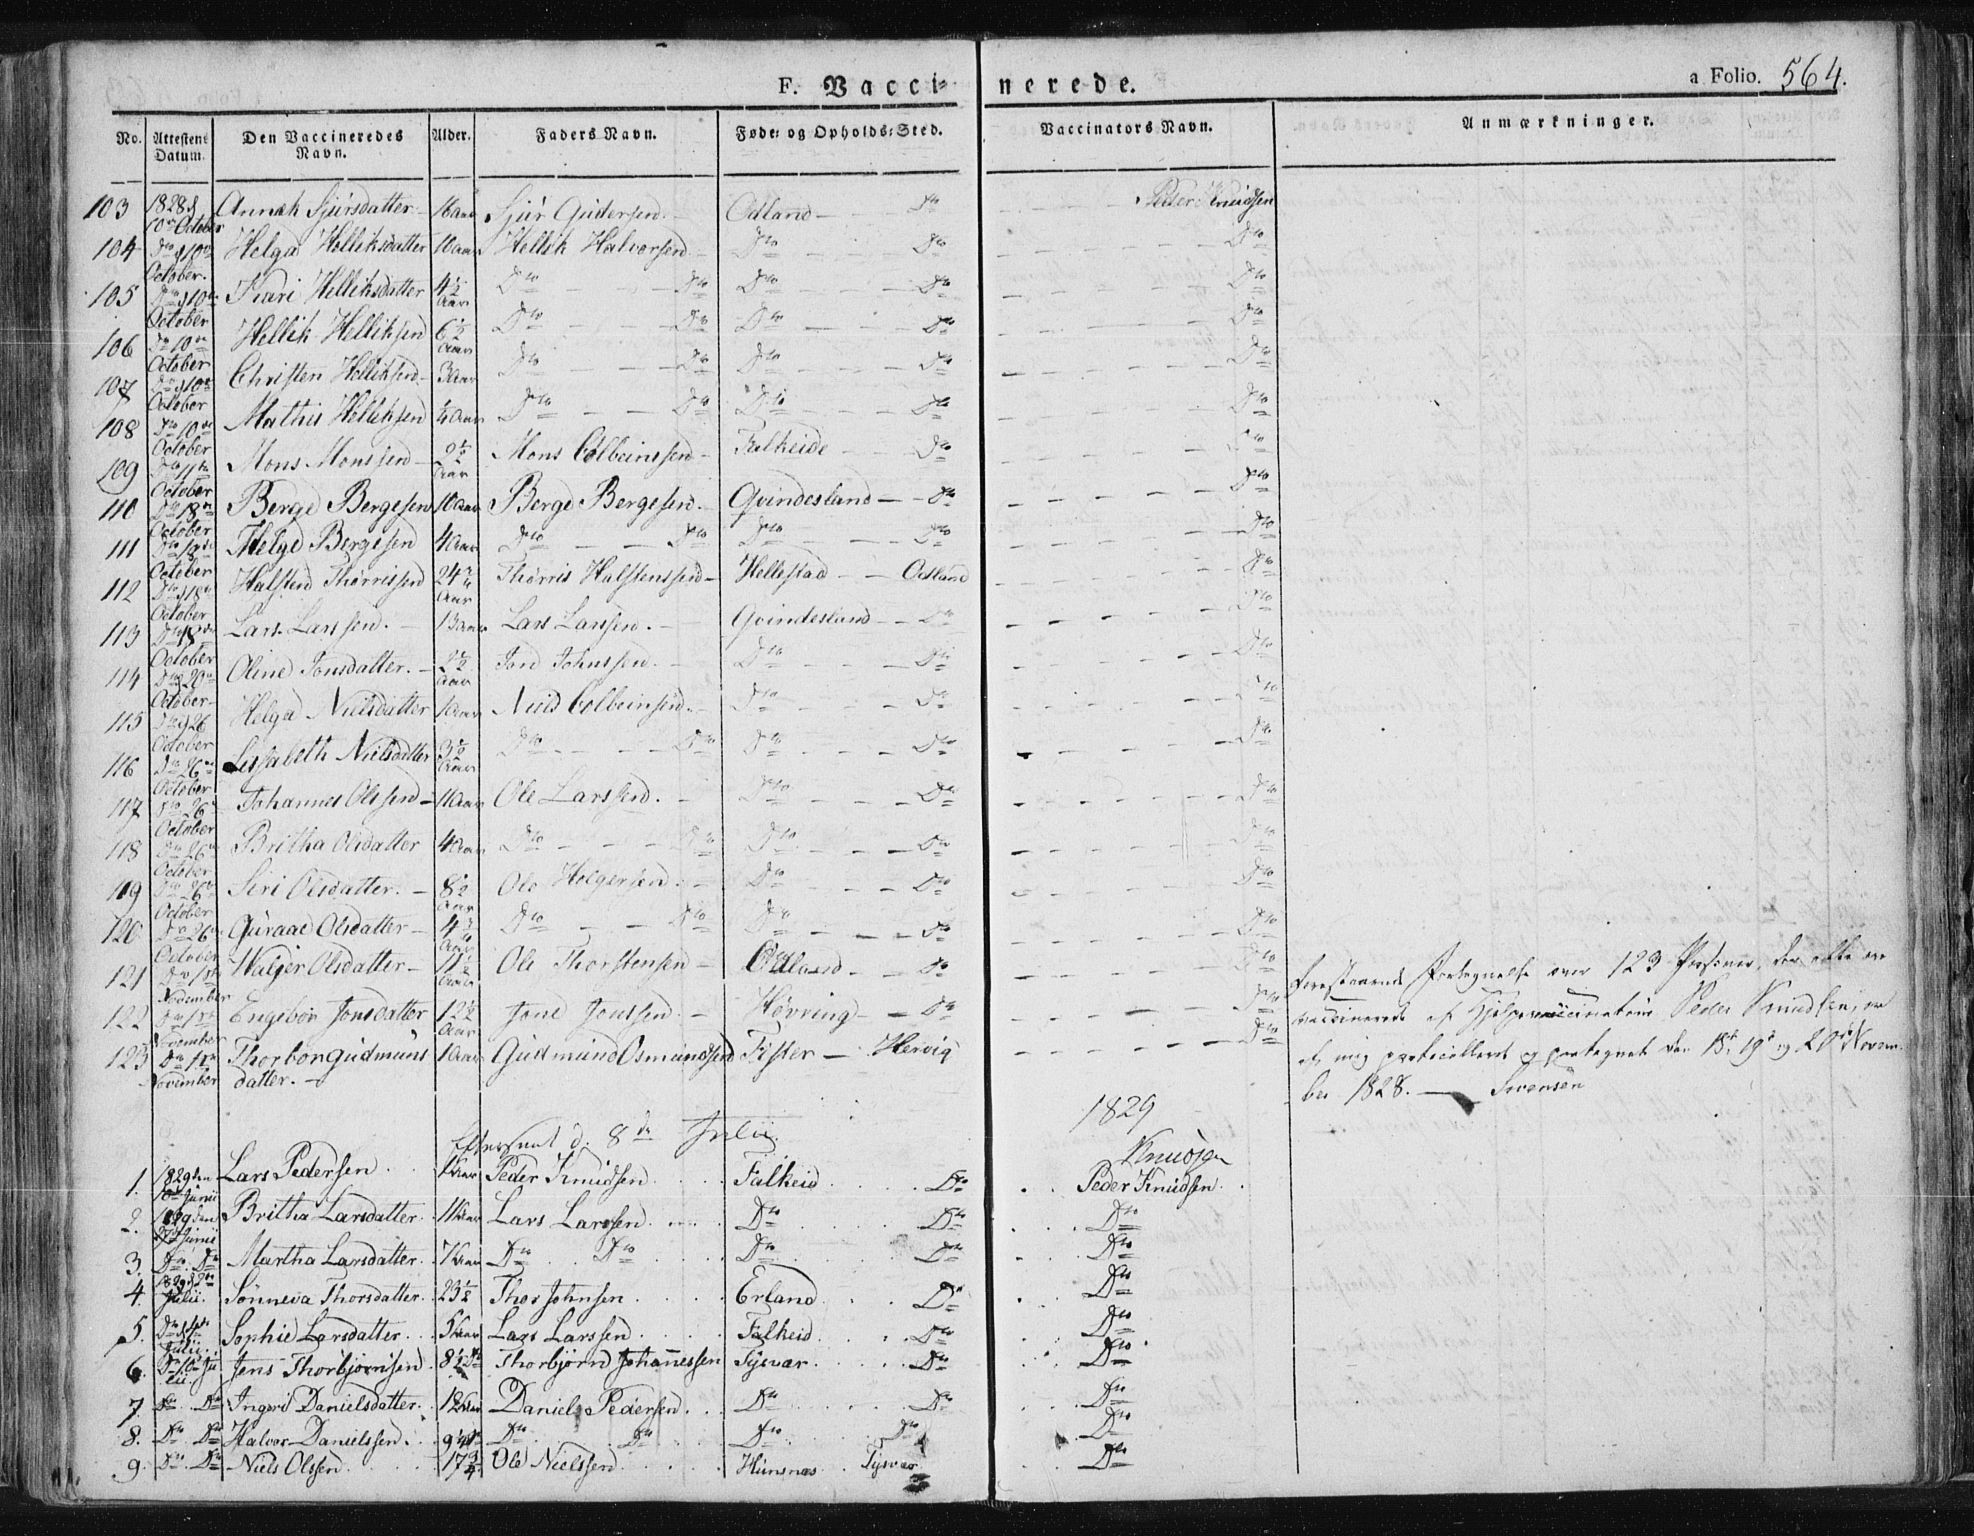 F. Vacci- nerede. a Folio. 564.
No. Attestens Datum. Den Vaccineredes Navn. Alder. Faders Navn. Føde- og Opholds-Sted. Vaccinators Navn. Anmærkninger.
103 1828 d 10de October Annah Sjursdatter 16 Aar Sjur Gudersen. Odland Do Peder Knudsen
104 Do d 10de October. Helga Helliksdatter 10 Aar Hellik Halvorsen Do Do Do
105 Do d 10de October Kari Helliksdatter 4 1/2 Aar Do Do Do Do Do
106 Do 10de October Hellik Helliksen 6 1/2 Aar Do Do Do Do Do
107 Do d 10de October Christen Helliksen 3 Aar Do Do Do Do Do
108 Do 10de October Mathis Helliksen Aar Do Do Do Do Do
109 Do 11te October Mons Monssen Aar Mons Colbeinssen Falkeide Do Do
110 Do 18de October Berge Bergesen 10 Aar Berge Bergesen. Qvindesland Do Do
111 Do 18de October Helge Bergesen 4 Aar Do Do Do Do Do
112 Do d 18de October Halsten Thørrissen 24 Aar Thørris Halstenssen Hellestad Odland Do
113 Do 18de October Lars Larssen. 13 Aar Lars Larssen. Qvindesland Do Do
114 Do d 20de October Oline Jonsdatter. 2 1/2 Aar Jon Johnssen. Do Do Do
115 Do d 26 October Helga Nielsdatter 10 Aar Niels Colbeinsen. Do Do Do
116 Do 26de October Lissabeth Nielsdatter 3 1/2 Aar Do Do Do Do Do
117 Do 26de October Johannes Olssen 11 Aar Ole Larssen. Do Do Do
118 Do 26de October Britha Olsdatter 4 Aar Do Do Do Do Do
119 Do 26de October Siri Olsdatter. 8 1/2 Aar Ole Holgersen. Do Do Do
120 Do 26de October Guraae Olsdatter 4 Aar Do Do Do Do Do
121 Do 1ste November Walger Olsdatter 11 1/2 Aar Ole Thorstensen Odland Do Do
122 Do 1ste November Engebor Jonsdatter 12 1/2 Aar Jone Jonssen. Høvring Do Do
123 Do 1ste November Thorbor Gudmuns 10 Aar Gudmund Osmundsen Fister Hervig Do
datter.
Forestaaende Fortegnelse over 123 Personer, der alle ere
vaccinerede af Hjelpevaccinateur Peder Knudsen, er
af mig protocolleret og fortegnet den 18de, 19de og 20de Novem-
ber 1828. Svensen
1829
d. 8de Julii.
Knudsen
1. 1829 den 10de Junii Lars Pedersen Aar Peder Knudsen Falkeid Do Peder Knudsen
2. 1829 den 27de Junii Britha Larsdatter 11 Aar Lars Larssen Do Do Do
3. Do Do Martha Larsdatter 7 Aar Do Do Do Do Do
4. 1829 d 2den Julii. Sønneva Thorsdatter 23 1/2 Thor Johnsen Erland Do Do
5. Do d 4de Julii. Sophie Larsdatter 5 Aar Lars Larssen Falkeid Do Do
6. Do 10de Julii. Jens Thorbjørnsen 8 1/2 Do Thorbjørn Johannessen Tysvær Do Do
7. Do Do Ingeri Danielsdatter 12 Aar Daniel Pedersen. Do Do Do
8. Do Do Halvor Danielssen. 9 Do Do Do Do Do Do
9. Do Do Niels Olssen 17 3/4 Ole Nielssen Hunsnæs Tysvær Do